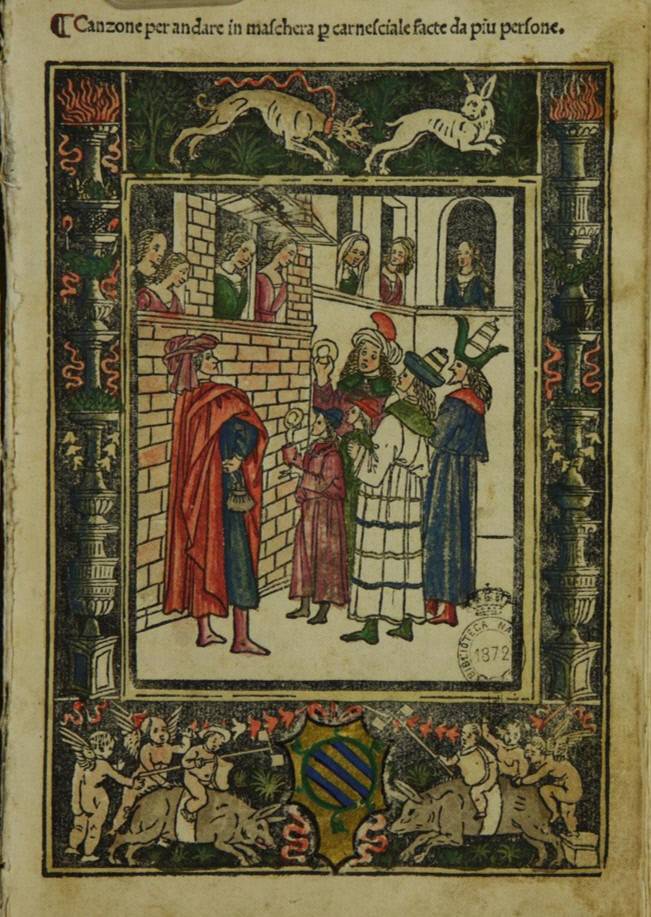 ⁋ Canzone per andare in maschera ꝑ carnesciale facte da piu persone.
BIBLIOTECA NA
1872